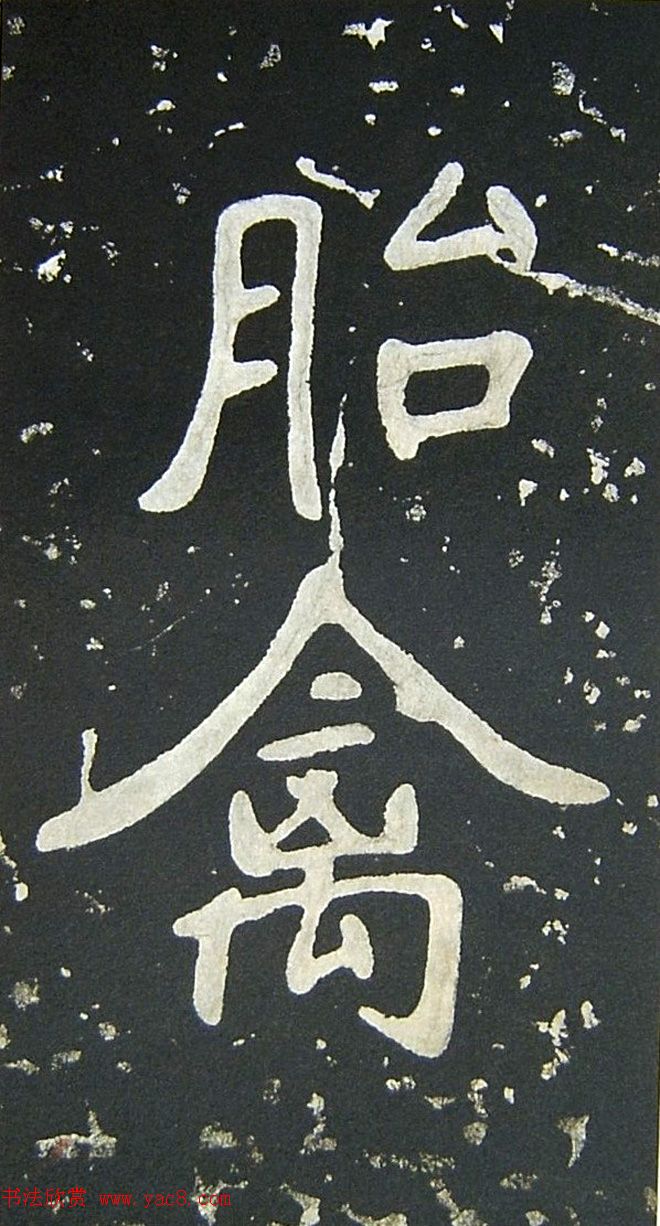 胎
禽
书法欣赏 www.yac8.com